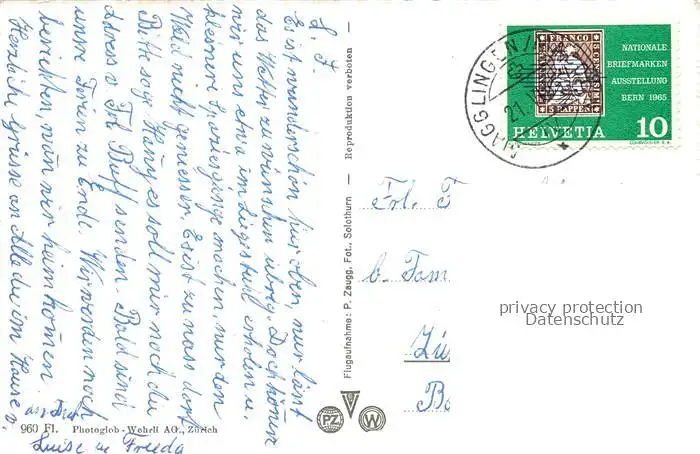 L. F.
Es ist wunderschön hier oben, nur lässt
das Wetter zu wünschen übrig. Doch können
wir uns etwa im Liegestuhl erholen u.
kleinere Spaziergänge machen, nur den
Wald nicht geniessen. Es ist zu nass dort
Bitte sage Hänry es soll mir noch die
Adress v. Frl. Ruff senden. Bald sind
unsre Ferien zu Ende. Wir werden noch
berichten, wann wir heim kommen
Herzliche Grüsse an Alle die im Hause v.
Luise u Freeda
960 Fl. Photoglob-Wehrli AG., Zürich
Flugaufnahme: P. Zaugg, Fot. Solothurn — Reproduktion verboten —
PZ W
MAGGLINGEN
21.
FRANCO
5 RAPPEN
NATIONALE
BRIEFMARKEN
AUSSTELLUNG
BERN 1965
HELVETIA 10
COURVOISIER S.A.
Frl. F
b. Fam
Zü
privacy protection
Datenschutz